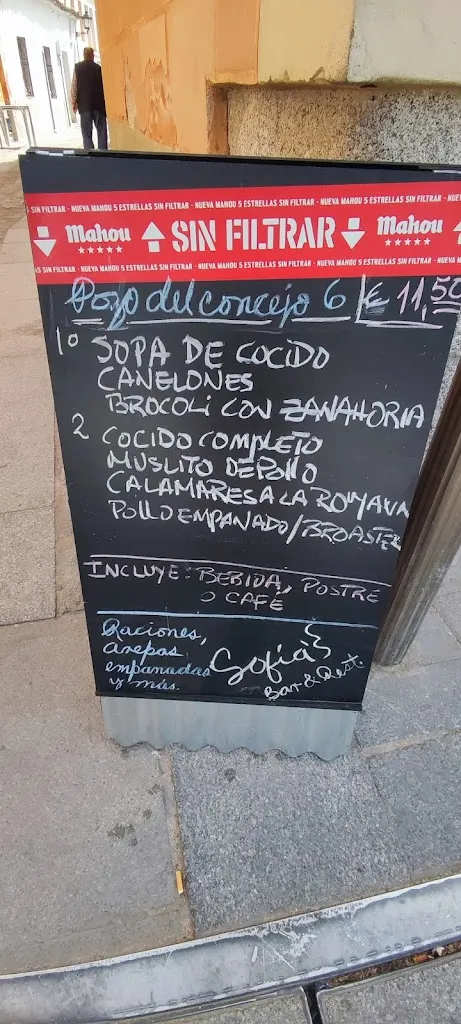 SIN FILTRAR - NUEVA MAHOU 5 ESTRELLAS SIN FILTRAR - NUEVA MAHOU 5 ESTRELLAS SIN FILTRAR - NUEVA MAHOU 5 ESTRELLAS SIN FILTRAR
Mahou SIN FILTRAR Mahou
SIN FILTRAR - NUEVA MAHOU 5 ESTRELLAS SIN FILTRAR - NUEVA MAHOU 5 ESTRELLAS SIN FILTRAR - NUEVA MAHOU 5 ESTRELLAS SIN FILTRAR
Pozo del concejo 6 € 11,50
1º SOPA DE COCIDO
CANELONES
BROCOLI CON ZANAHORIA
2 COCIDO COMPLETO
MUSLITO DE POLLO
CALAMARES A LA ROMANA
POLLO EMPANADO/BROASTER
INCLUYE: BEBIDA, POSTRE
O CAFÉ
Raciones,
arepas
empanadas
y más.
Sofía's
Bar & Rest.